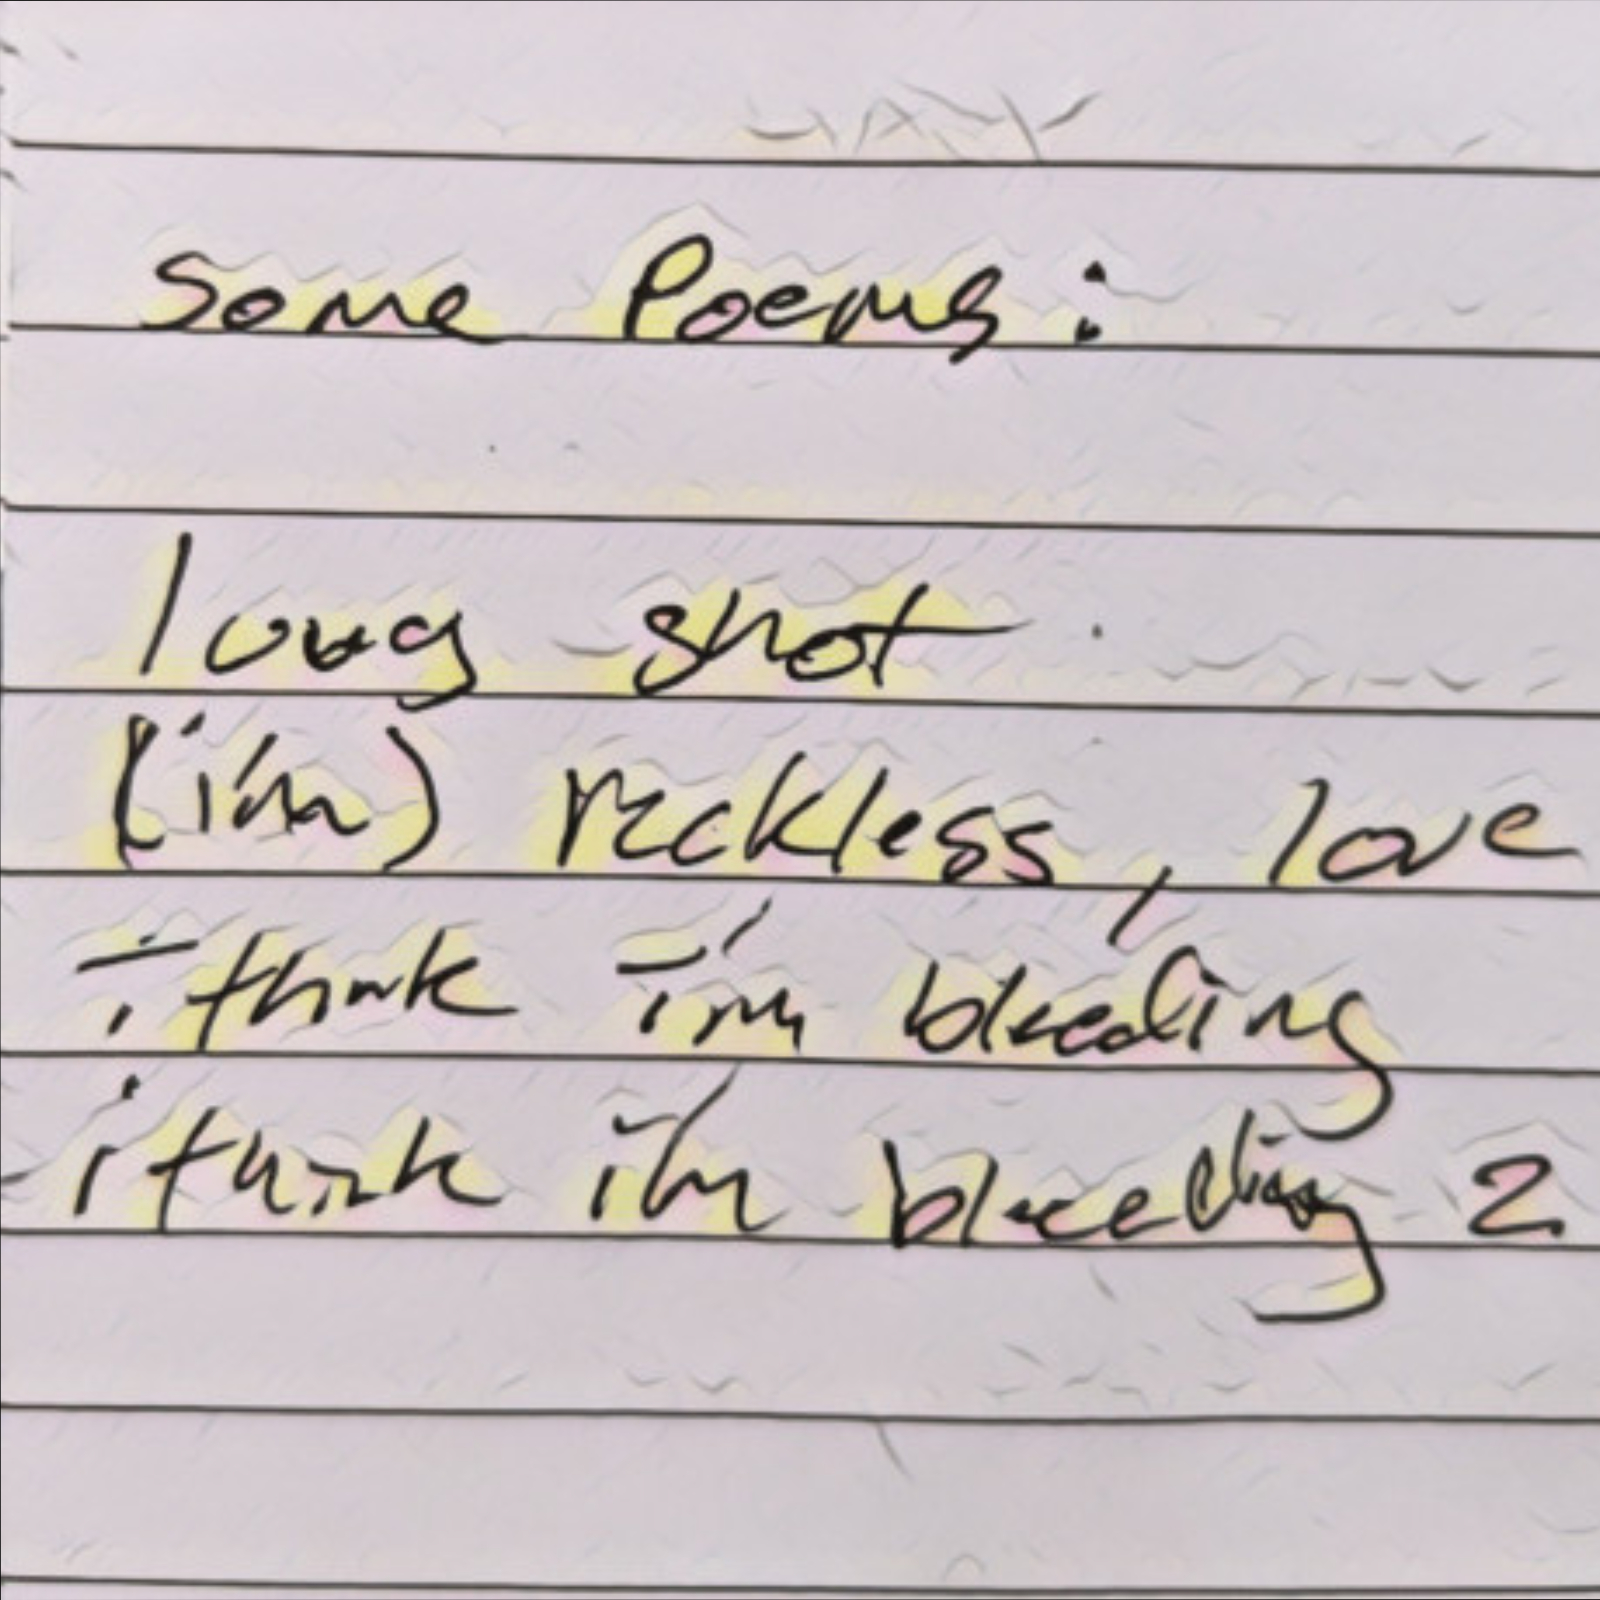 some Poems:
long shot
(i'm) reckless, love
i think i'm bleeding
i think i'm bleeding 2